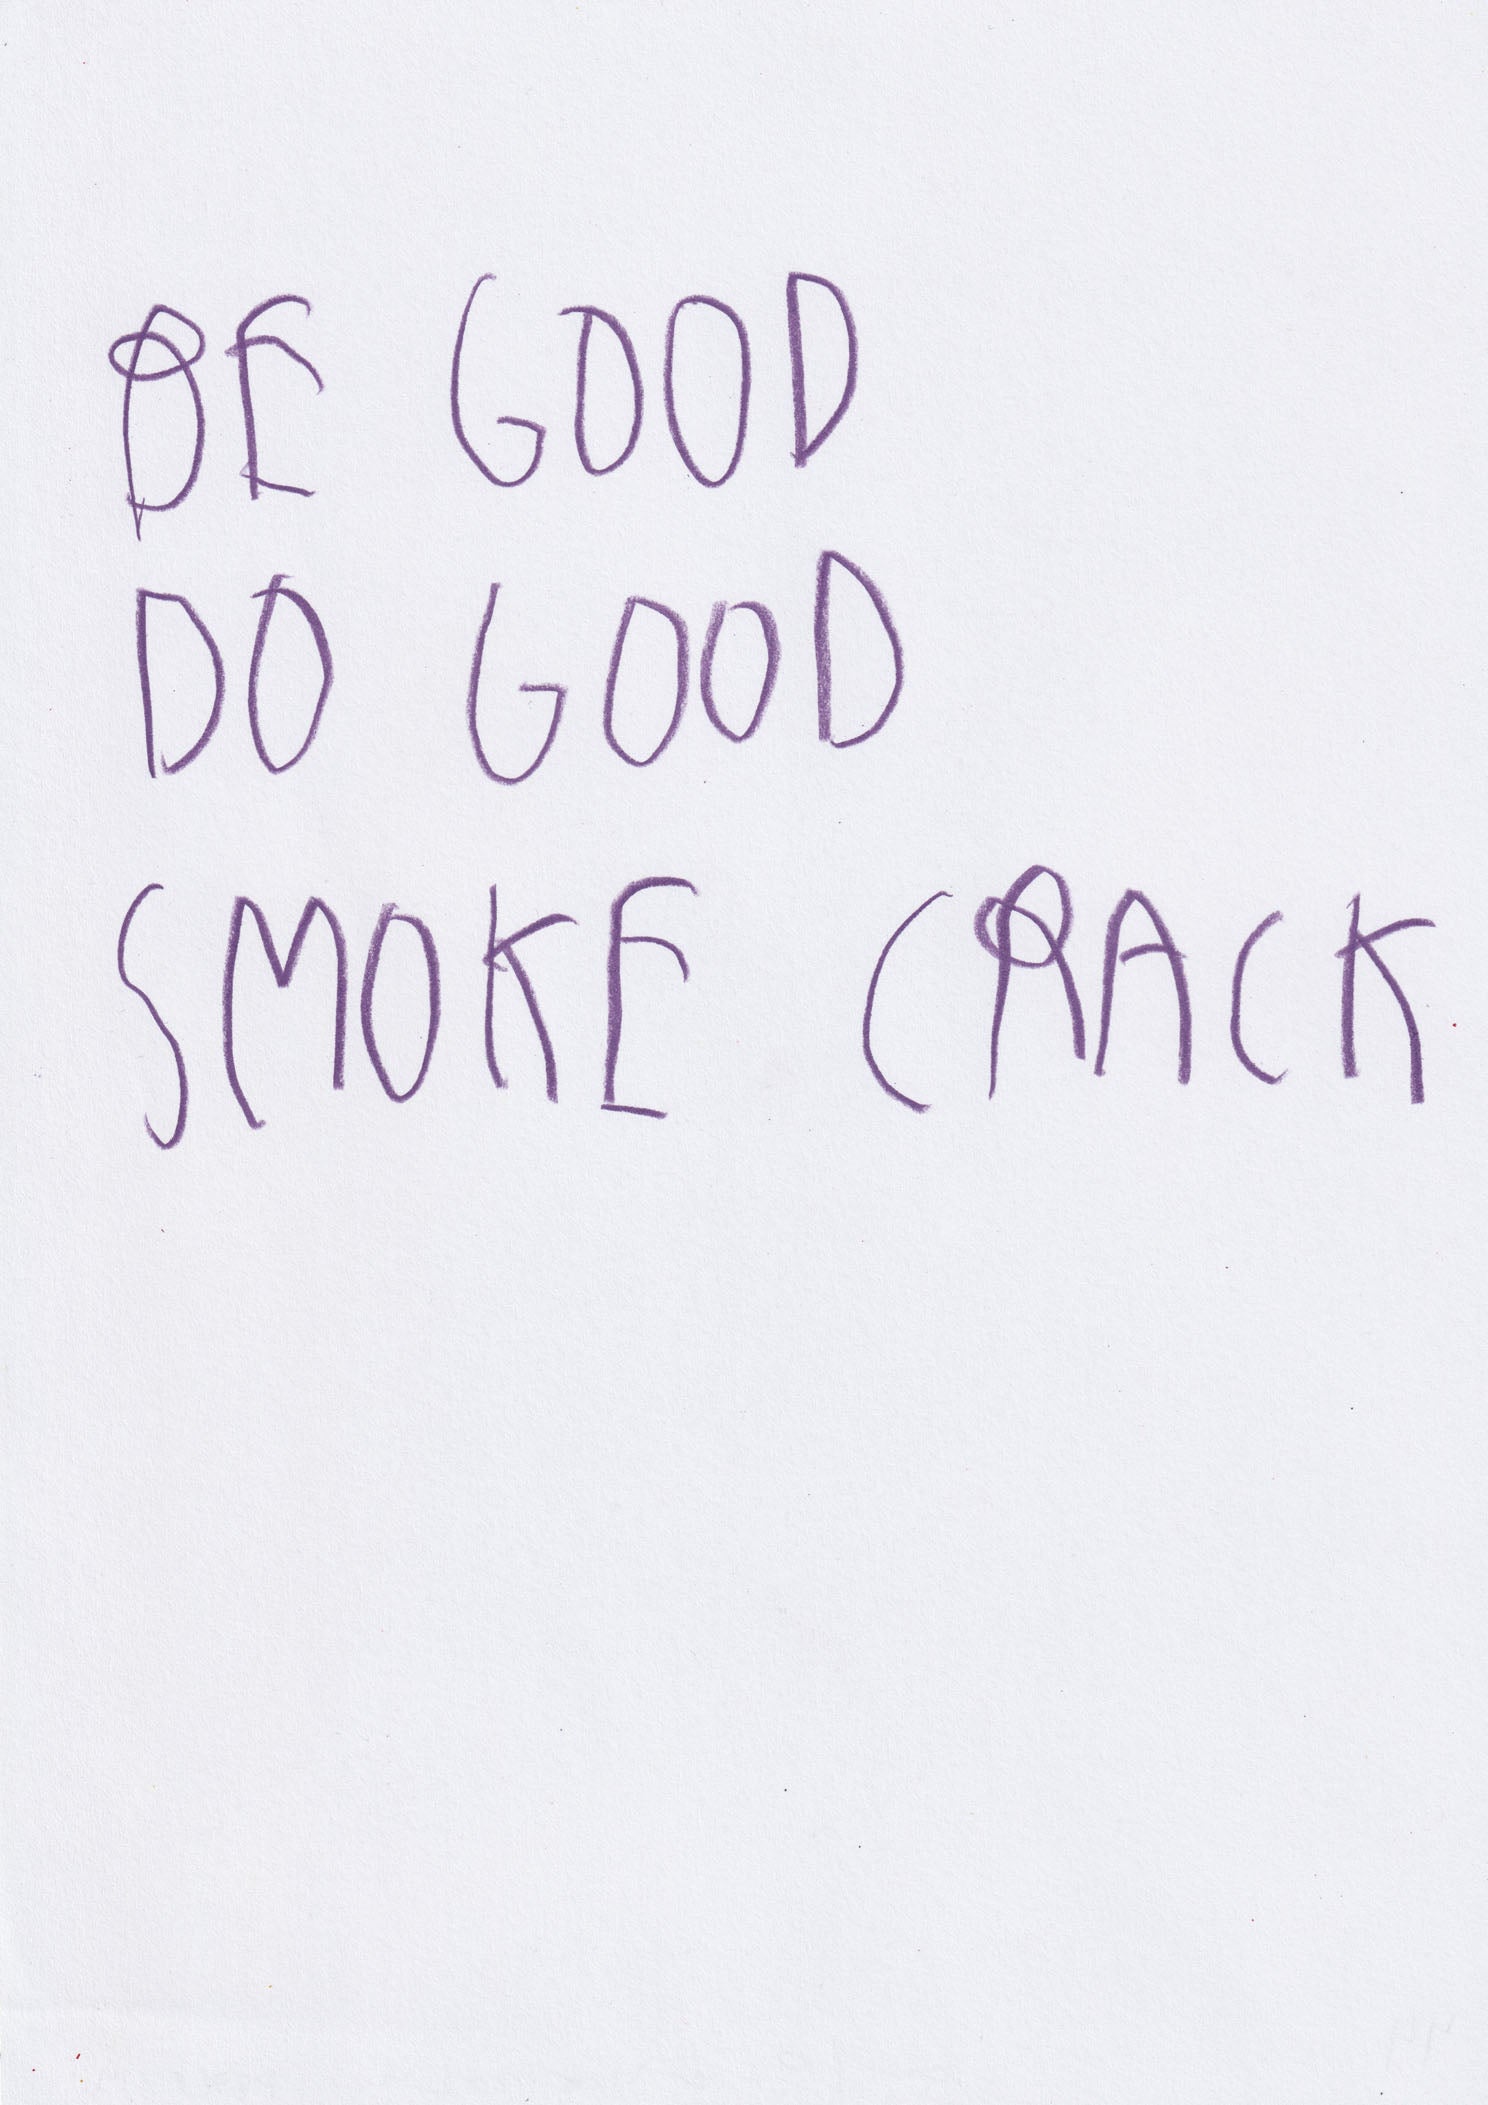 BE GOOD
DO GOOD
SMOKE CRACK